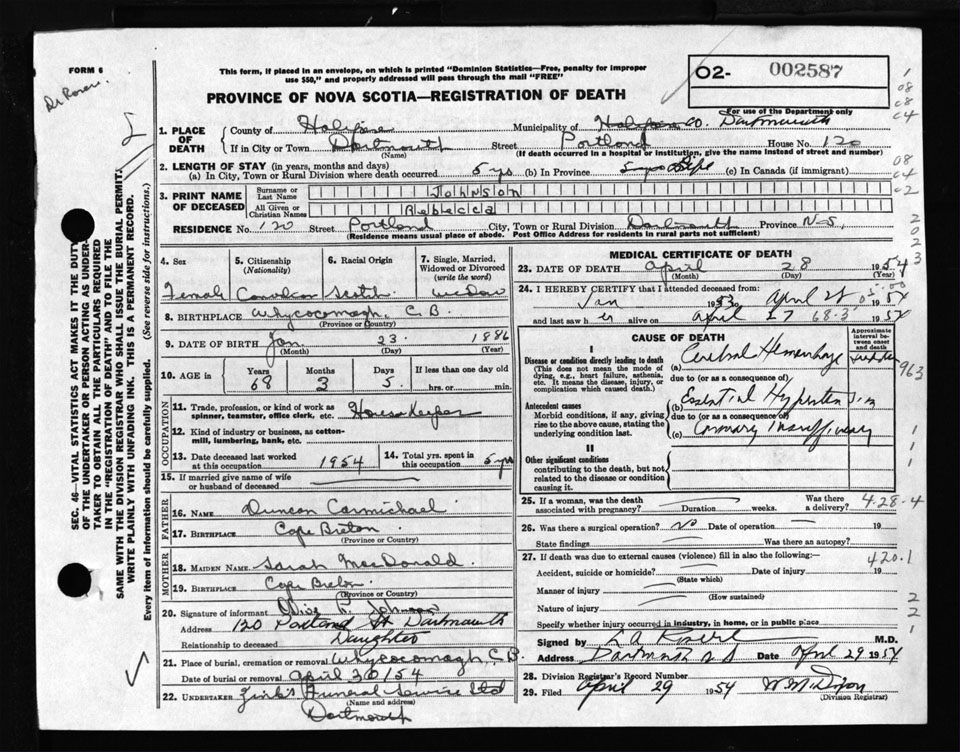 FORM 6
This form, if placed in an envelope, on which is printed "Dominion Statistics—Free, penalty for improper
use $50," and properly addressed will pass through the mail "FREE"
02- 002587
PROVINCE OF NOVA SCOTIA—REGISTRATION OF DEATH
For use of the Department only
1. PLACE OF DEATH
County of Halifax Municipality of Dartmouth
If in City or Town Dartmouth Street Portland House No. 120
(Name) (If death occurred in a hospital or institution, give the name instead of street and number)
2. LENGTH OF STAY (in years, months and days)
(a) In City, Town or Rural Division where death occurred 5 yrs (b) In Province Life (c) In Canada (if immigrant)
3. PRINT NAME OF DECEASED
Surname or Last Name Johnson
All Given or Christian Names Rebecca
RESIDENCE No. 120 Street Portland City, Town or Rural Division Dartmouth Province N.S.
(Residence means usual place of abode. Post Office Address for residents in rural parts not sufficient)
4. Sex
Female
5. Citizenship (Nationality)
Canadian
6. Racial Origin
Scotch
7. Single, Married, Widowed or Divorced (write the word)
Widow
8. BIRTHPLACE Whycocomagh, C.B.
(Province or Country)
9. DATE OF BIRTH Jan 23 1886
(Month) (Day) (Year)
10. AGE in Years Months Days If less than one day old
68 3 5 hrs. or min.
OCCUPATION
11. Trade, profession, or kind of work as
spinner, teamster, office clerk, etc. House Keeper
12. Kind of industry or business, as cotton-
mill, lumbering, bank, etc.
13. Date deceased last worked
at this occupation 1954
14. Total yrs. spent in
this occupation 5 yrs
15. If married give name of wife
or husband of deceased
FATHER
16. NAME Duncan Carmichael
17. BIRTHPLACE Cape Breton
(Province or Country)
MOTHER
18. MAIDEN NAME Sarah MacDonald
19. BIRTHPLACE Cape Breton
(Province or Country)
20. Signature of informant Olive R. Johnson
Address 120 Portland St Dartmouth
Relationship to deceased Daughter
21. Place of burial, cremation or removal Whycocomagh, C.B.
Date of burial or removal April 30/54
22. UNDERTAKER Zink's Funeral Service Ltd
(Name and address)
Dartmouth
MEDICAL CERTIFICATE OF DEATH
23. DATE OF DEATH April 28 1954
(Month) (Day) (Year)
24. I HEREBY CERTIFY that I attended deceased from:
Jan 1953 to April 28 1954
and last saw her alive on April 27 1954
68.3
CAUSE OF DEATH
Approximate interval between onset and death
I
Disease or condition directly leading to death
(This does not mean the mode of dying, e.g., heart failure, asthenia, etc. It means the disease, injury, or complication which caused death.)
(a) Cerebral Hemorrhage
due to (or as a consequence of)
Antecedent causes
Morbid conditions, if any, giving rise to the above cause, stating the underlying condition last.
(b) Essential Hypertension
due to (or as a consequence of)
(c) Coronary Insufficiency
II
Other significant conditions
contributing to the death, but not related to the disease or condition causing it.
25. If a woman, was the death
associated with pregnancy? Duration weeks. Was there a delivery?
428-4
26. Was there surgical operation? No Date of operation 19
State findings Was there an autopsy?
27. If death was due to external causes (violence) fill in also the following:—
420.1
Accident, suicide or homicide? Date of injury 19
(State which)
Manner of injury
(How sustained)
Nature of injury
Specify whether injury occurred in industry, in home, or in public place
Signed by M.D.
Address Dartmouth N S Date April 29 1954
28. Division Registrar's Record Number
29. Filed April 29 1954 W M Dixon
(Division Registrar)
SEC. 46—VITAL STATISTICS ACT MAKES IT THE DUTY
OF THE UNDERTAKER OR PERSON ACTING AS UNDER-
TAKER TO OBTAIN ALL THE PARTICULARS REQUIRED
IN THE "REGISTRATION OF DEATH" AND TO FILE THE
SAME WITH THE DIVISION REGISTRAR WHO SHALL ISSUE THE BURIAL PERMIT.
WRITE PLAINLY WITH UNFADING INK. THIS IS A PERMANENT RECORD.
Every item of information should be carefully supplied. (See reverse side for instructions.)